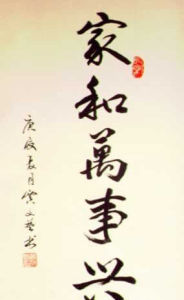 家和萬事興
庚辰夏月